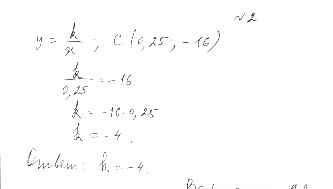 √2
y = k/x ; C (0,25; -16)
k/0,25 = -16
k = -16·0,25
k = -4.
Ответ: k = -4.